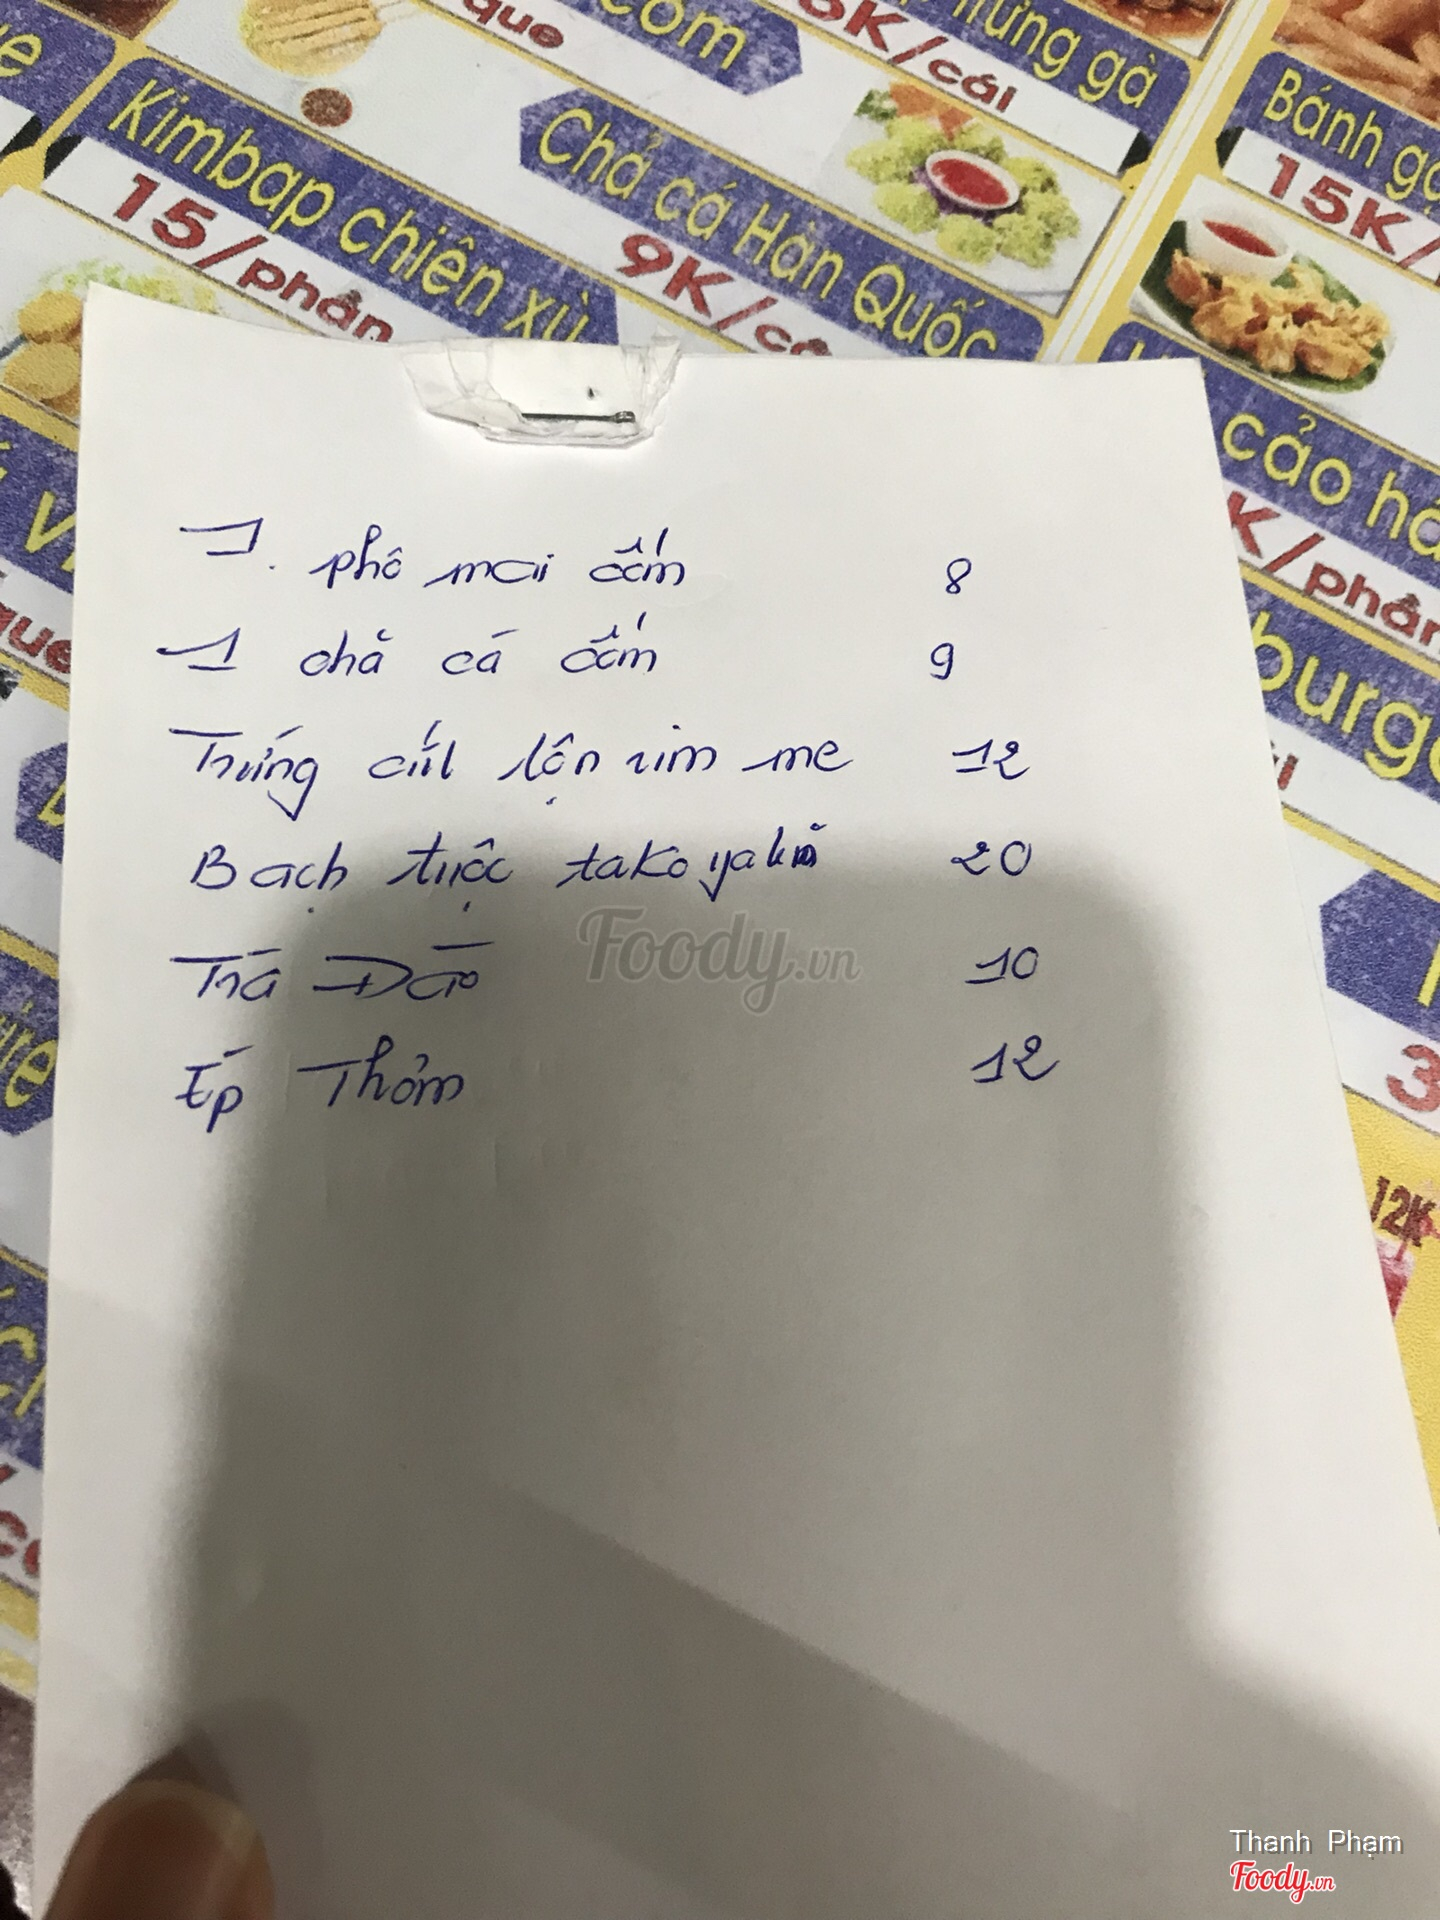 que
cơm
5K/cái
trứng gà
Kimbap chiên xù
15/phần
Chả cá Hàn Quốc
9K/câ
Bánh gạ
15K/
cảo há
K/phần
burge
que
12K
1. phô mai ấm
8
1 chả cá ấm
9
Trứng cút lộn rim me
12
Bạch tuộc takoyaki
20
Trà Đào
10
Ép Thơm
12
Foody.vn
Thanh Phạm
Foody.vn